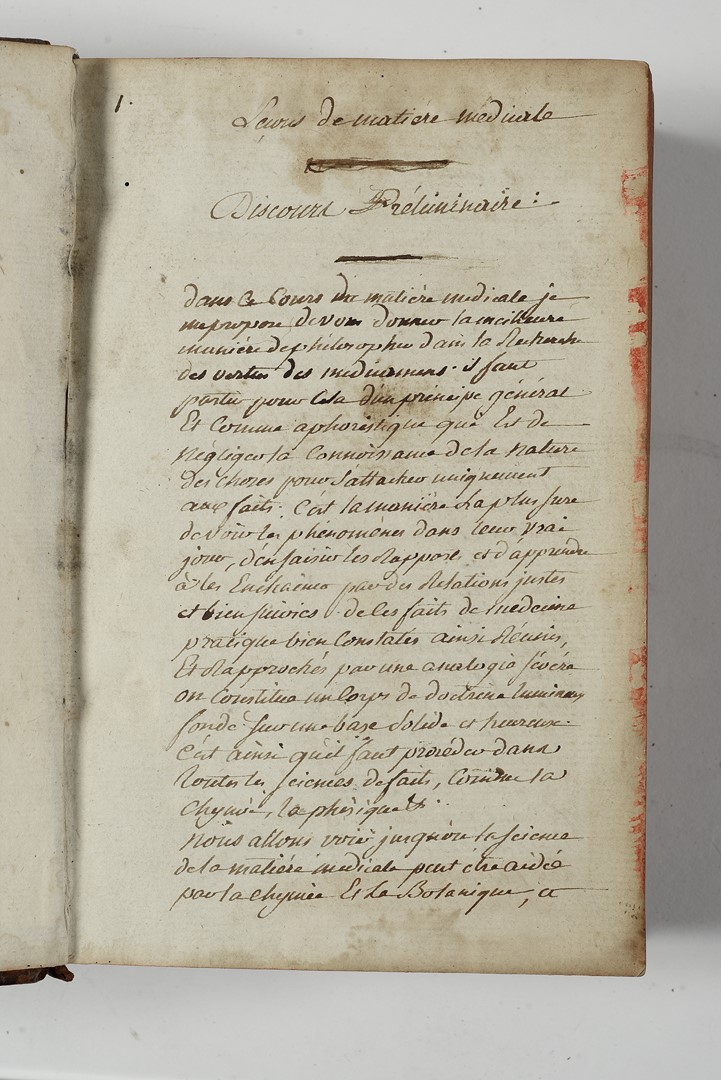 1.
Leçons de matiére médicale
Discours Préliminaire :
dans ce Cours de matière medicale je
me propose de vous donner la meilleure
maniére de philosopher dans la Recherche
des vertus des médicamens. il faut
partir pour cela d'un principe général
Et Comme aphoristique que Est de
négliger la Connoissance de la nature
des choses pour s'attacher uniquement
aux faits. C'est la maniére la plus sure
de voir les phénoménes dans leur vrai
jour, d'en saisir les Rapports et d'apprendre
à les Enchainer par des Relations justes
et bien suivies. de ces faits de médecine
pratique bien Constatés ainsi Réunis,
Et Rapprochés par une analogie sévére
on Constitue un Corps de doctrine lumineux
fondé sur une base Solide et heureuse.
C'est ainsi qu'il faut procéder dans
toutes les sciences de faits, Comme la
Chymie, la phisique &.
Nous allons voir jusqu'ou la science
de la matiére medicale peut etre aidée
par la Chymie Et La Botanique, et